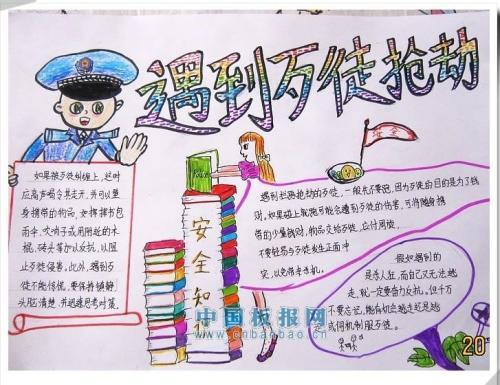 遇到歹徒抢劫
如果被歹徒纠缠上，这时
应高声喝令其走开，并可以量
身携带的物品，如挥挥书包
雨伞，吹哨子或用附近的木
棍，砖头等加以反抗，以阻
止歹徒侵害。此外，遇到歹
徒不能惊慌，要保持镇静
头脑清楚，并迅速思考对策。
安全知识
遇到拦路抢劫的歹徒，一般先不要跑，因为歹徒的目的是为了钱
财，如果碰上就跑可能会遭到歹徒的伤害，可将随身携
带的少量钱财，物品交给歹徒，应付周旋，
不要轻易与歹徒发生正面冲
突，以免带来危机。
假如遇到的
是杀人狂，而自己又无法逃
走，就一定要奋力反抗。但千万
不要忘记，能有机会逃走还是逃
或伺机制服歹徒。
中国板报网
www.cnbanbao.cn
20